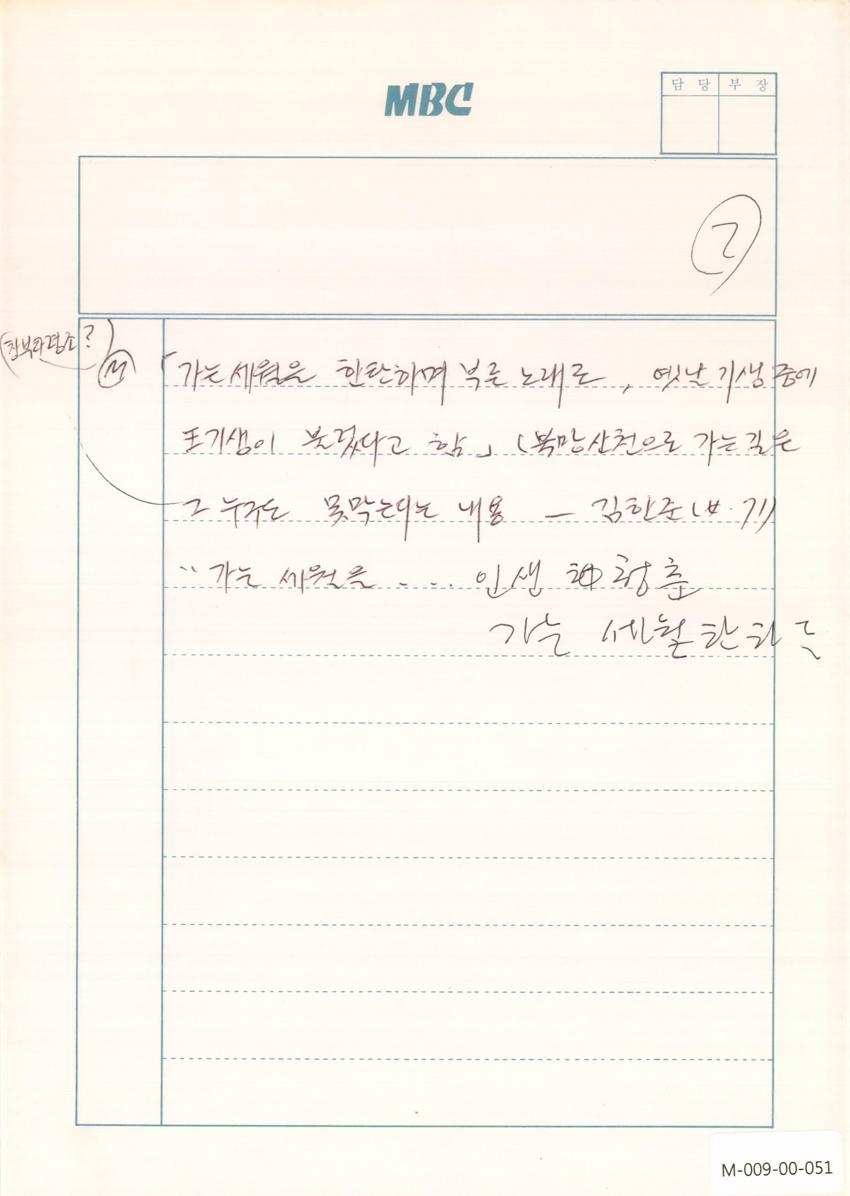 MBC
담 당 부 장
2
?
M 「가는 세월을 한탄하며 부른 노래로, 옛날 기생 중에
기생이 불렀다고 함」 (북망산천으로 가는 길은
그 누구도 못막는다는 내용 — 김한준(女. 71)
“가는 세월을 .... 인생 청춘
가는 세월 한탄
M-009-00-051